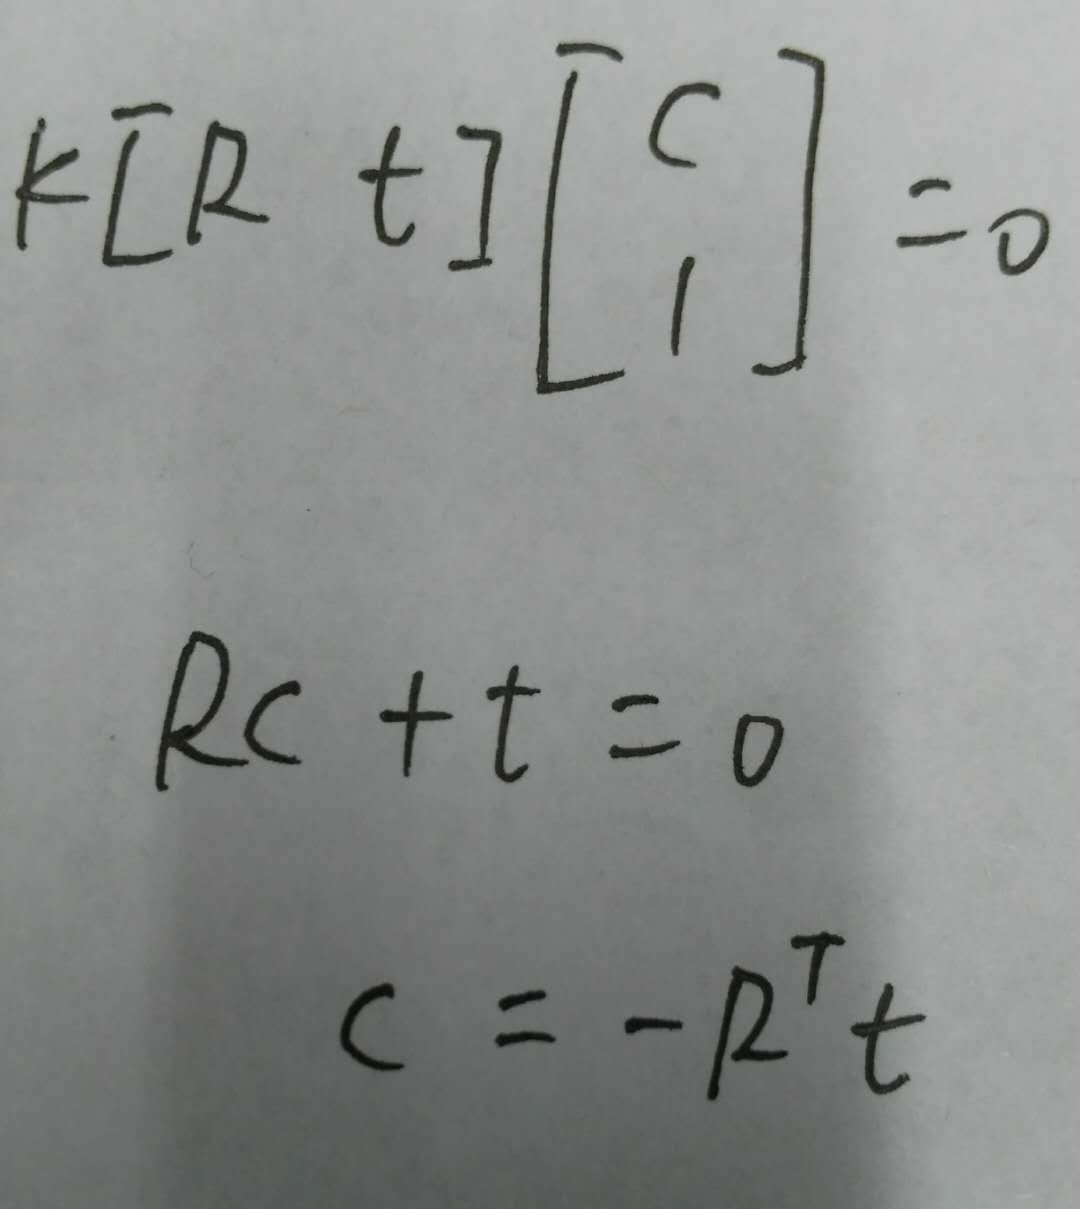 K[R t][C 1] = 0
RC + t = 0
C = -Rᵀt